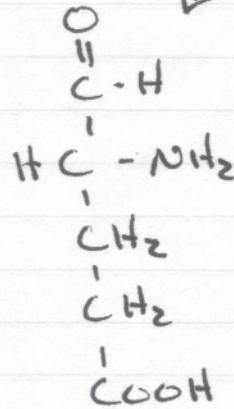 O
||
C - H
|
H C - NH₂
|
CH₂
|
CH₂
|
COOH